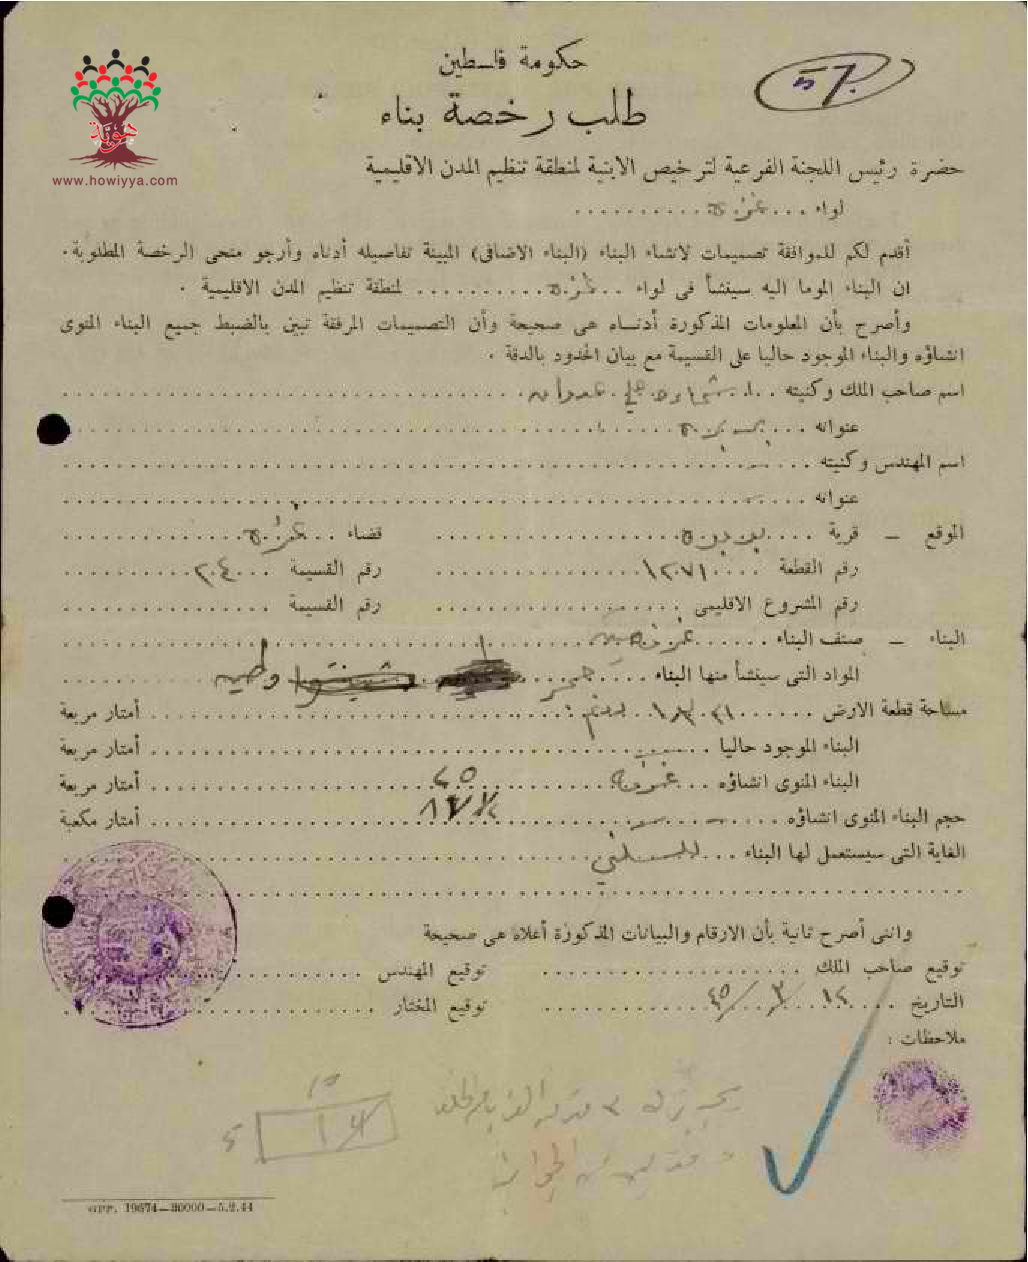 حكومة فلسطين
طلب رخصة بناء
هوية
www.howiyya.com
حضرة رئيس اللجنة الفرعية لترخيص الابنية لمنطقة تنظيم المدن الاقليمية
لواء ... غزة ...........
أقدم لكم للموافقة تصميمات لانشاء البناء (البناء الاضافى) المبينة تفاصيله أدناه وأرجو منحى الرخصة المطلوبة.
ان البناء الموما اليه سينشأ فى لواء ... غزة .......... لمنطقة تنظيم المدن الاقليمية .
وأصرح بأن المعلومات المذكورة أدناه هى صحيحة وأن التصميمات المرفقة تبين بالضبط جميع البناء المنوى
انشاؤه والبناء الموجود حاليا على القسيمة مع بيان الحدود بالدقة .
اسم صاحب الملك وكنيته ... على
عنوانه ...
اسم المهندس وكنيته ...
عنوانه ...
الموقع - قرية ... قضاء ... غزة ...
رقم القطعة ... ١٢٧١ ... رقم القسيمة ... ٢٠٤ ...
رقم المشروع الاقليمى ... رقم القسيمة ...
البناء - صنف البناء ... غرفتين ...
المواد التى سينشأ منها البناء ... حجر وطين
مساحة قطعة الارض ... دونم ... أمتار مربعة
البناء الموجود حاليا ... أمتار مربعة
البناء المنوى انشاؤه ... غرفة ... أمتار مربعة
حجم البناء المنوى انشاؤه ... أمتار مكعبة
الغاية التى سيستعمل لها البناء ... للسكنى ...
واننى أصرح ثانية بأن الارقام والبيانات المذكورة أعلاه هى صحيحة
توقيع صاحب الملك ... توقيع المهندس ...
التاريخ ... ١٢/٣/٤٥ ... توقيع المختار ...
ملاحظات :
GPP. 19674—30000—5.2.44